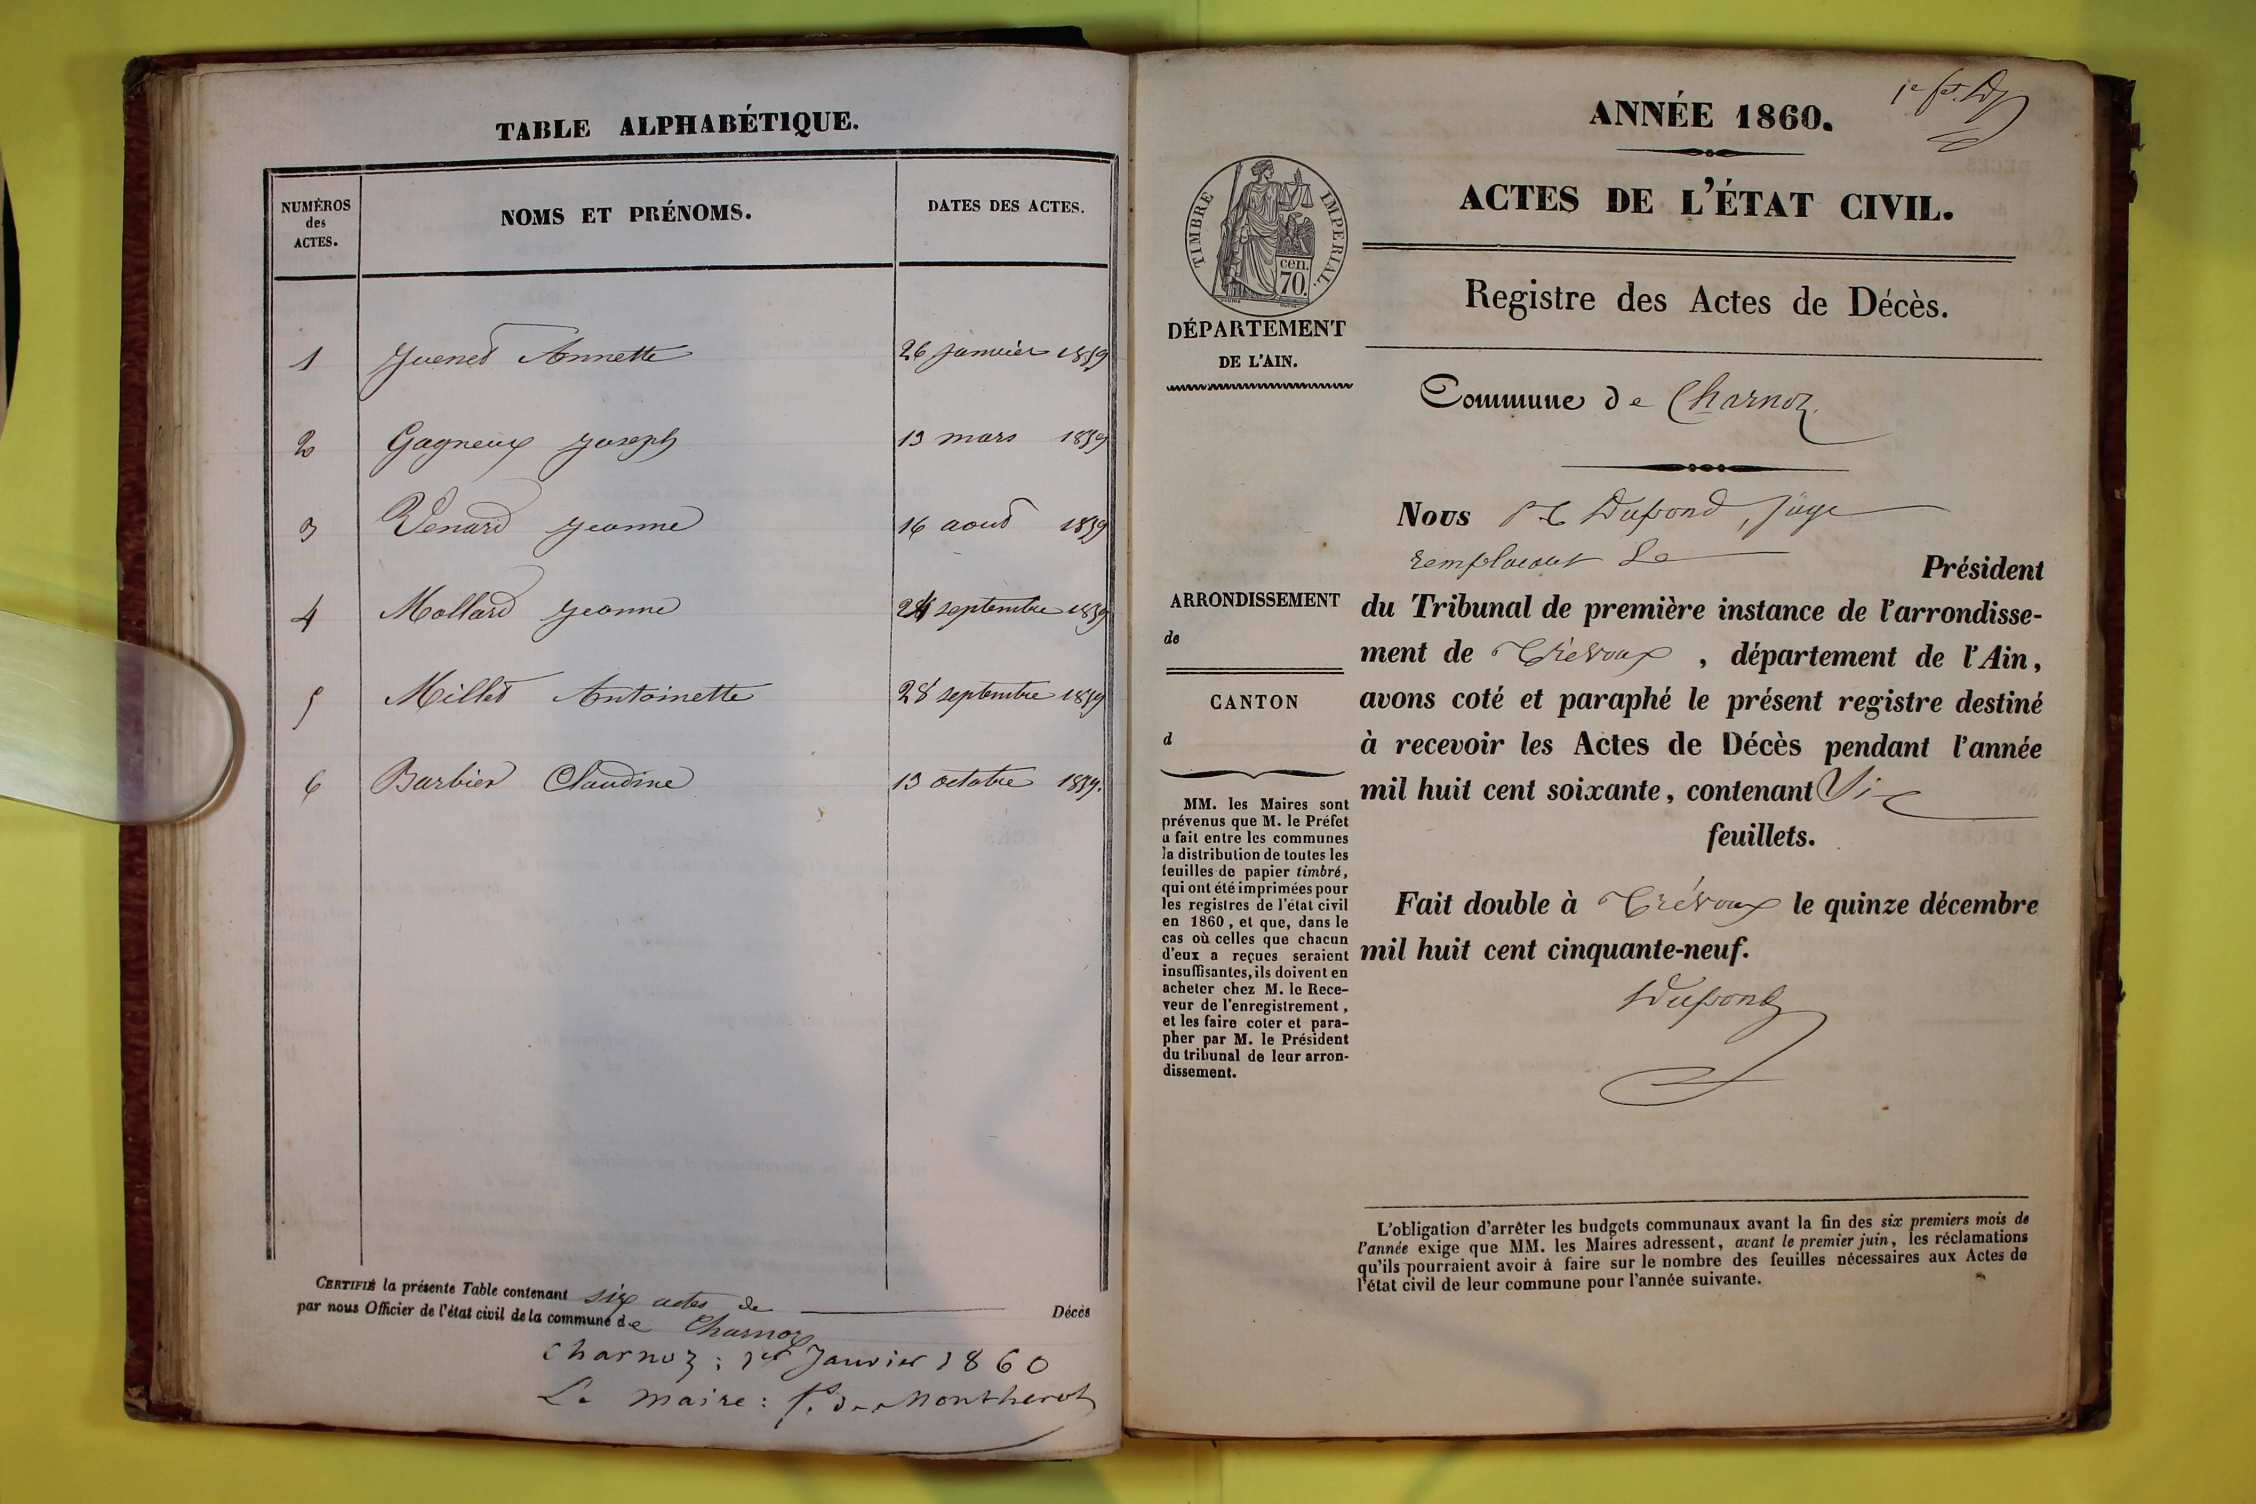 TABLE ALPHABÉTIQUE.
NUMÉROS
des
ACTES.
NOMS ET PRÉNOMS.
DATES DES ACTES.
1 Juenet Annette 26 janvier 1859
2 Gagneux Joseph 13 mars 1859
3 Venard Jeanne 16 aout 1859
4 Mollard Jeanne 24 septembre 1859
5 Millet Antoinette 28 septembre 1859
6 Barbier Claudine 13 octobre 1859.
CERTIFIÉ la présente Table contenant six actes de Décès
par nous Officier de l'état civil de la commune de Charnoz
Charnoz : 1er Janvier 1860
Le maire : de Montherot
ANNÉE 1860.
ACTES DE L'ÉTAT CIVIL.
TIMBRE IMPERIAL.
cen.
70.
DÉPARTEMENT
DE L'AIN.
Registre des Actes de Décès.
Commune de Charnoz
Nous Dupond, juge
remplacant le Président
du Tribunal de première instance de l'arrondisse-
ment de Trévoux, département de l'Ain,
avons coté et paraphé le présent registre destiné
à recevoir les Actes de Décès pendant l'année
mil huit cent soixante, contenant Six
feuillets.
Fait double à Trévoux le quinze décembre
mil huit cent cinquante-neuf.
Dupond
ARRONDISSEMENT
de
CANTON
d
MM. les Maires sont
prévenus que M. le Préfet
a fait entre les communes
la distribution de toutes les
feuilles de papier timbré,
qui ont été imprimées pour
les registres de l'état civil
en 1860, et que, dans le
cas où celles que chacun
d'eux a reçues seraient
insuffisantes, ils doivent en
acheter chez M. le Rece-
veur de l'enregistrement,
et les faire coter et para-
pher par M. le Président
du tribunal de leur arron-
dissement.
L'obligation d'arrêter les budgets communaux avant la fin des six premiers mois de
l'année exige que MM. les Maires adressent, avant le premier juin, les réclamations
qu'ils pourraient avoir à faire sur le nombre des feuilles nécessaires aux Actes de
l'état civil de leur commune pour l'année suivante.